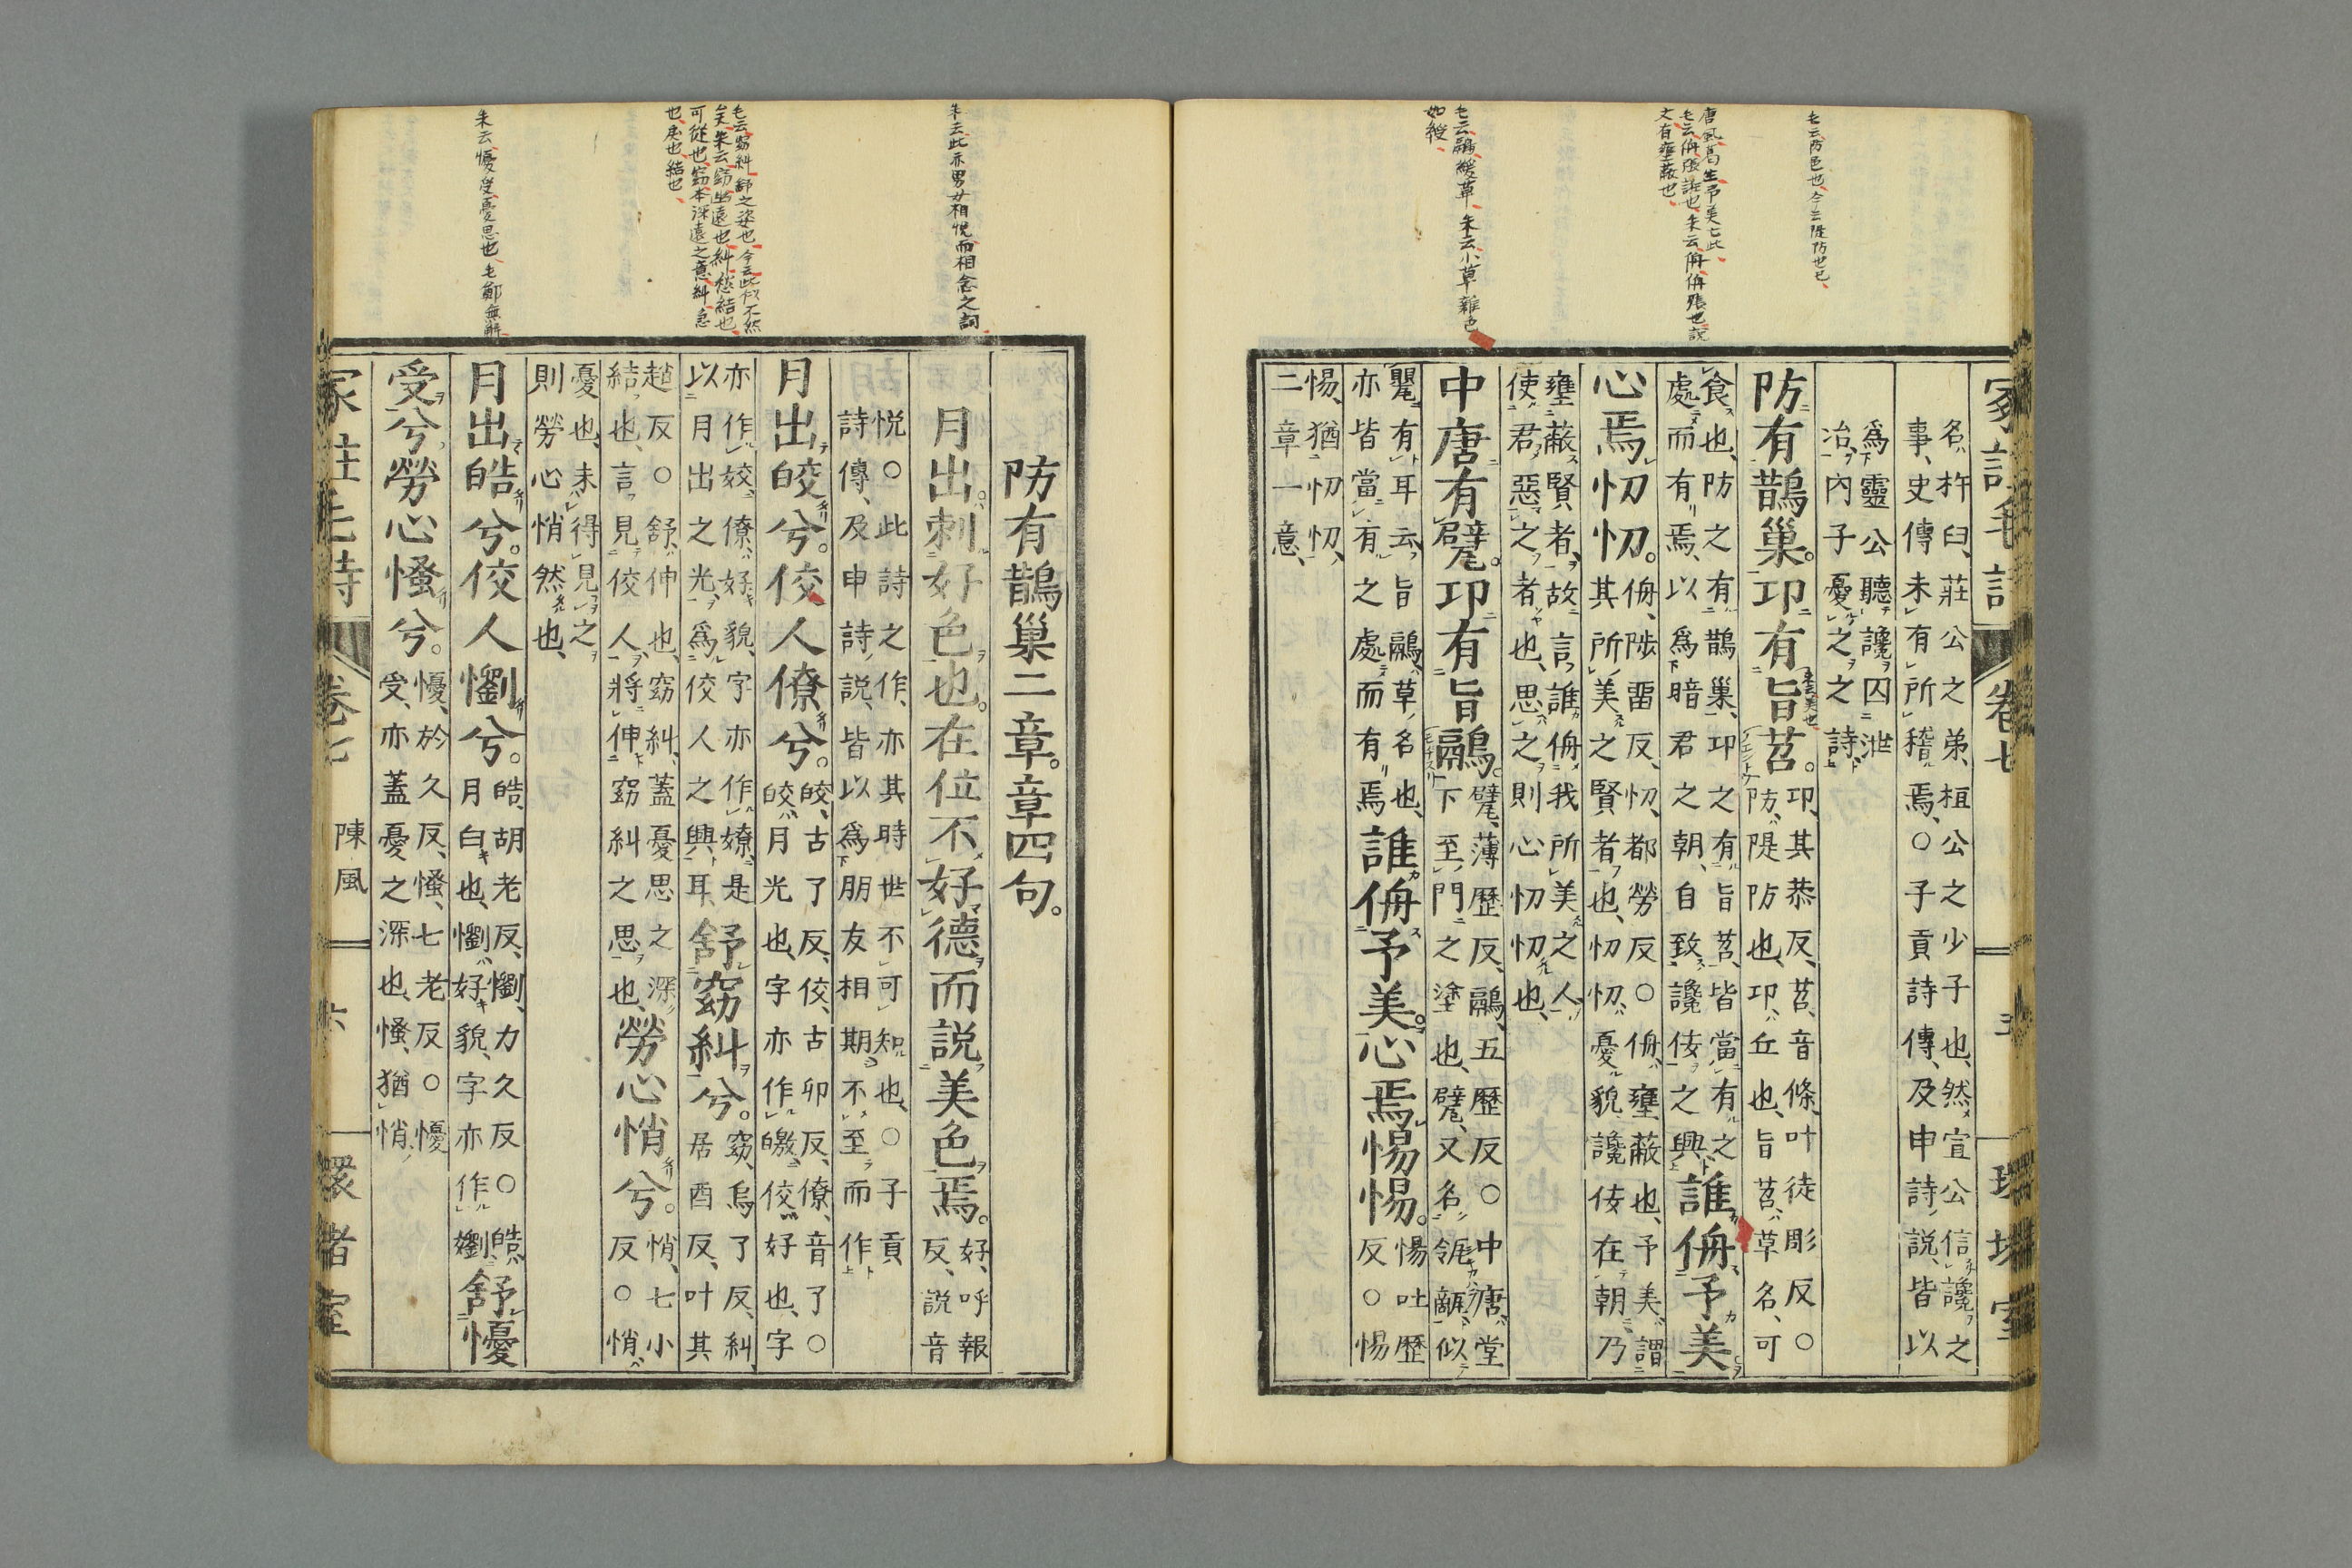 毛云防邑也今云隄防也已
唐風葛生予美亡此
毛云侜張誑也朱云侜侜張也説
文有壅蔽也
毛云鷊綬草朱云小草雜色
如綬
冢註毛詩 卷七 五 環堵室
名、杵臼、莊公之弟、桓公之少子也、然宣公信讒之
事、史傳未有所稽焉、○子貢詩傳、及申詩説、皆以
爲靈公聽讒囚泄
冶、内子憂之之詩、
防有鵲巢。卭有旨苕。卭、其恭反、苕、音條、叶徒彫反○
防、隄防也、卭、丘也、旨苕、草名、可
食也、防之有鵲巢、卭之有旨苕、皆當有之
處而有焉、以爲暗君之朝、自致讒佞之興、誰侜予美
心焉忉忉。侜、陟畱反、忉、都勞反○侜、壅蔽也、予美、謂
其所美之賢者也、忉忉、憂貌、讒佞在朝、乃
壅蔽賢者、故言誰侜我所美之人
使君惡之者也、思之則心忉忉也、
中唐有甓。卭有旨鷊。甓、薄歷反、鷊、五歷反○中唐、堂
下至門之塗也、甓、又名瓴甋、似
鼍有耳云、旨鷊、草名也、
亦皆當有之處而有焉、誰侜予美。心焉惕惕。惕吐歷
反○惕
惕、猶忉忉、
二章一意、
朱云此亦男女相悦而相念之詞
毛云窈糾舒之姿也今云此似不然
朱云窈幽遠也糾愁結也
可從也窈本深遠之意糾急
也戾也結也
朱云懮受憂思也毛鄭無解
防有鵲巢二章。章四句。
月出。刺好色也。在位不好德。而説美色焉。好、呼報
反、説音
悦○此詩之作、亦其時世不可知也、○子貢
詩傳、及申詩説、皆以爲朋友相期不至而作
月出皎兮。佼人僚兮。皎、古了反、佼、古卯反、僚、音了○
皎、月光也、字亦作皦、佼、好也、字
亦作姣、僚、好貌、字亦作嫽、是
以月出之光、爲佼人之興耳、舒窈糾兮。窈、烏了反、糾、
居酉反、叶其
趙反○舒、伸也、窈糾、蓋憂思之深
結也、言見佼人、將伸窈糾之思也、勞心悄兮。悄、七小
反○悄
憂也、未得見之
則勞心悄然也、
月出皓兮。佼人懰兮。皓、胡老反、懰、力久反○皓、
月白也、懰、好貌、字亦作嬼、舒懮
受兮。勞心慅兮。懮、於久反、慅、七老反○懮
受、亦蓋憂之深也、慅、猶悄、
冢註毛詩 卷七 陳風 六 環堵室